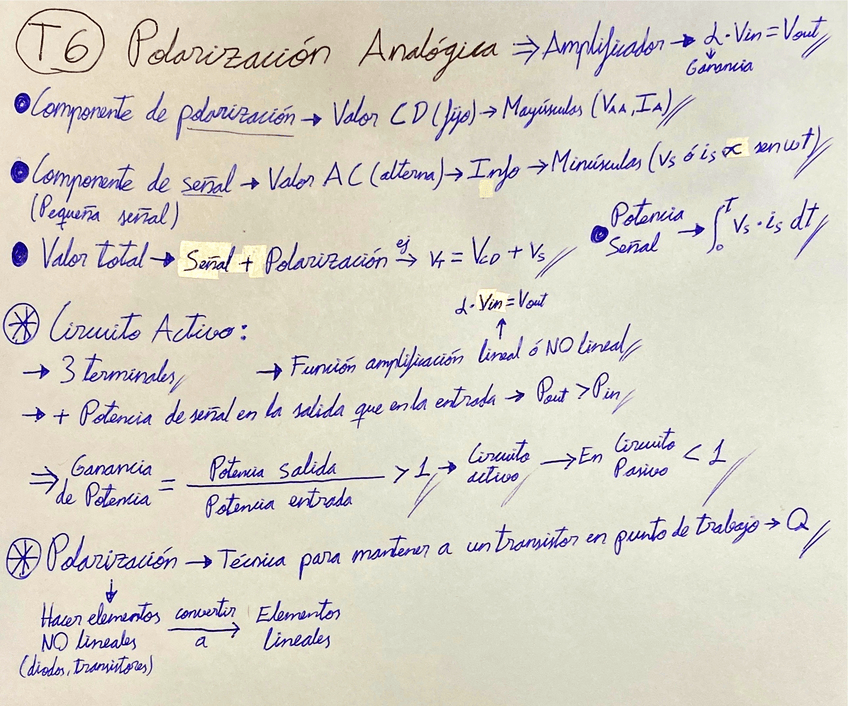 T6 Polarización Analógica ⇒ Amplificador → α · Vin = Vout
↓
Ganancia
• Componente de polarización → Valor CD (fijo) → Mayúsculas (VAA, IA)
• Componente de señal → Valor AC (alterna) → Info → Minúsculas (vs ó is ∝ sen ωt)
(Pequeña señal)
• Potencia Señal → ∫₀ᵀ vs · is dt
• Valor total → Señal + Polarización ej→ vT = VCD + vs
⊛ Circuito Activo:
α · Vin = Vout
↑
→ 3 terminales → Función amplificación lineal ó NO lineal
→ + Potencia de señal en la salida que en la entrada → Pout > Pin
⇒ Ganancia de Potencia = Potencia salida / Potencia entrada > 1 → Circuito activo → En Circuito Pasivo < 1
⊛ Polarización → Técnica para mantener a un transistor en punto de trabajo → Q
↓
Hacer elementos NO lineales convertir a → Elementos lineales
(diodos, transistores)